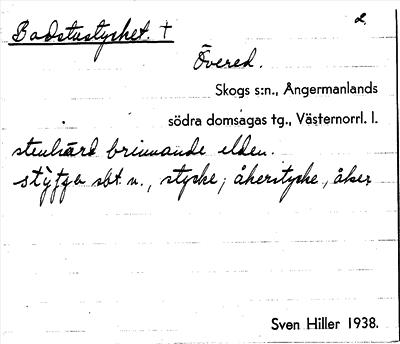 Badstustycket. †
2.
Övered.
Skogs s:n., Ångermanlands
södra domsagas tg., Västernorrl. l.
stenhård brinnande elden.
sbt. n., stycke; åkerstycke, åker
Sven Hiller 1938.